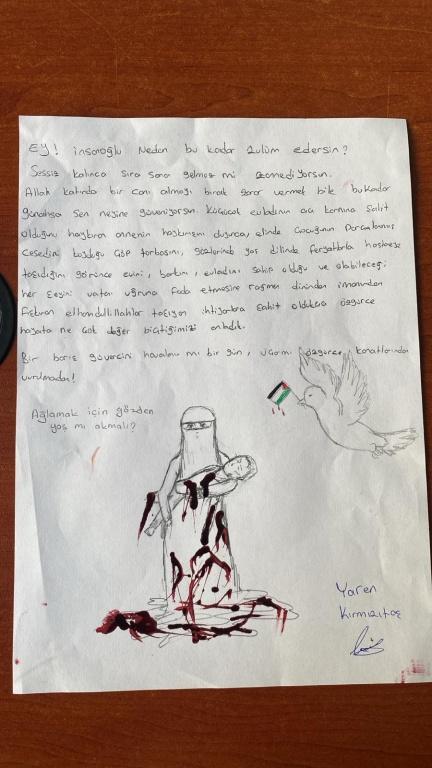 EY! insanoğlu Neden bu kadar zulüm edersin?
Sessiz kalınca sıra sana gelmez mi zannediyorsun.
Allah katında bir canı almayı bırak zarar vermek bile bu kadar
günahsa sen neyine güveniyorsun. Küçücük evladının acı karnına şahit
olduğunu haykıran annenin haykırışını duyunca, elinde çocuğunun parçalanmış
cesedini koyduğu çöp torbasını, gözlerinde yaş dilinde feryatlarla hastaneye
taşıdığını görünce evini, barkını, evladını sahip olduğu ve olabileceği
her şeyini vatan uğruna feda etmesine rağmen dininden imanından
elhamdulillahlar taşıyan ihtiyarlara şahit oldukça özgürce
hayata ne çok değer biçtiğimizi anladık.
Bir barış güvercini havalanır mı bir gün, uçar mı özgürce, kanatlarından
vurulmadan!
Ağlamak için gözden
yaş mı akmalı?
Yaren
Kırmızıtaş